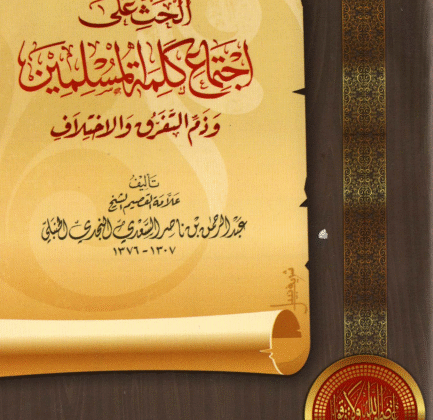 الحث على
اجتماع كلمة المسلمين
وذم التفرق والاختلاف
تأليف
علامة القصيم الشيخ
عبد الرحمن بن ناصر السعدي النجدي الحنبلي
١٣٠٧ - ١٣٧٦